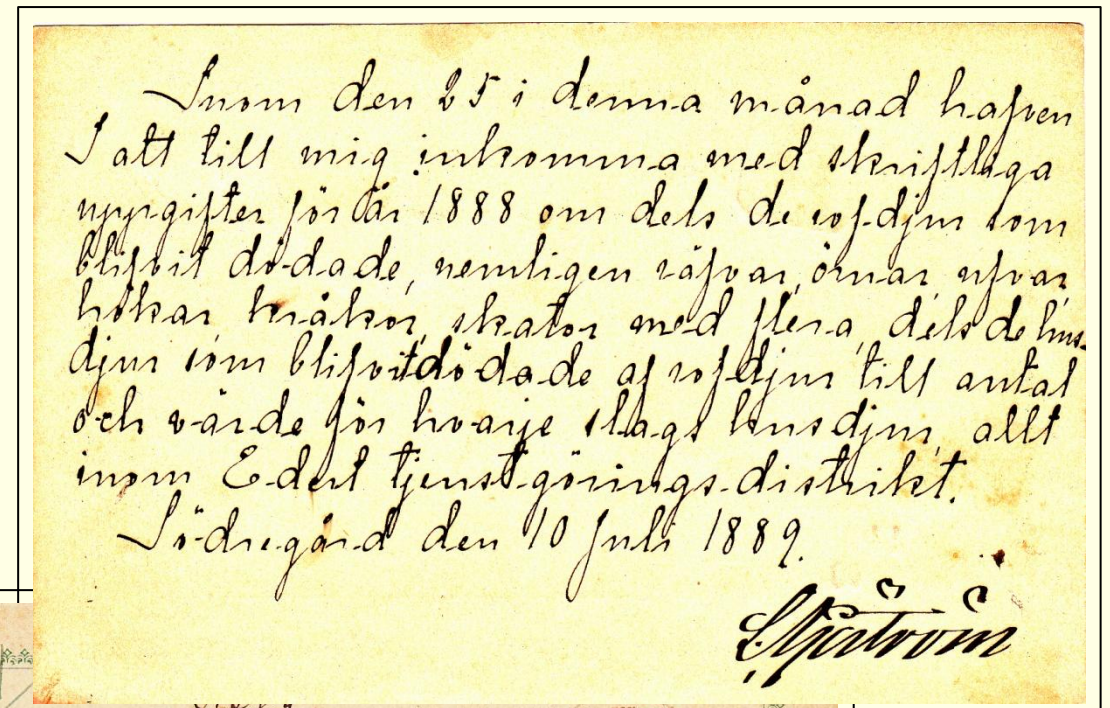 Inom den 25 i denna månad hafven
I att till mig inkomma med skriftliga
uppgifter för år 1888 om dels de rofdjur som
blifvit dödade, nemligen räfvar, örnar, ufvar,
hökar, kråkor, skator med flera, dels de hus-
djur som blifvit dödade af rofdjur till antal
och värde för hvarje slags husdjur, allt
inom Edert tjenstgörings-distrikt.
Södregård den 10 Juli 1889.